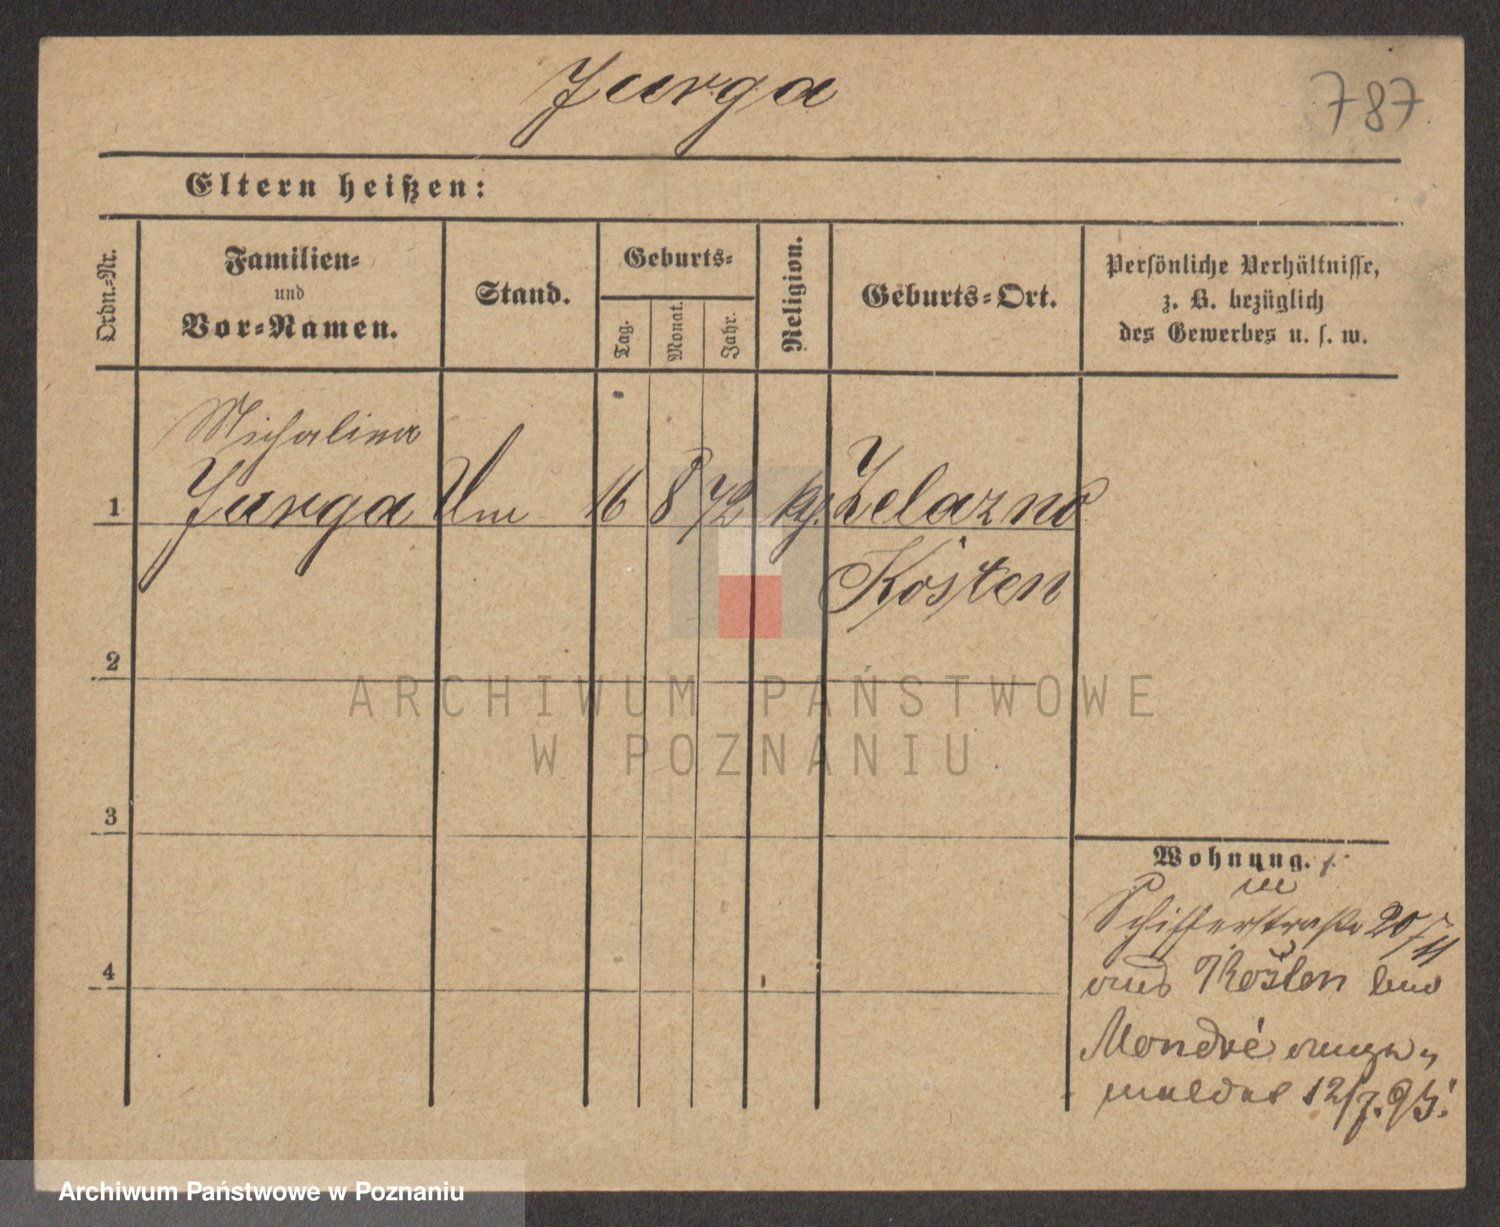 Jurga
787
Eltern heißen:
Ordn.-Nr.
Familien-
und
Vor-Namen.
Stand.
Geburts-
Tag.
Monat.
Jahr.
Religion.
Geburts-Ort.
Persönliche Verhältnisse,
z. B. bezüglich
des Gewerbes u. s. w.
Michalina
1 Jurga 16 8 72 Zelazno
Kosten
2
ARCHIWUM PAŃSTWOWE
W POZNANIU
3
Wohnung.
Schifferstraße 20/11
aus Kosten bei
Mondré
meldet 12/7.95.
4
Archiwum Państwowe w Poznaniu